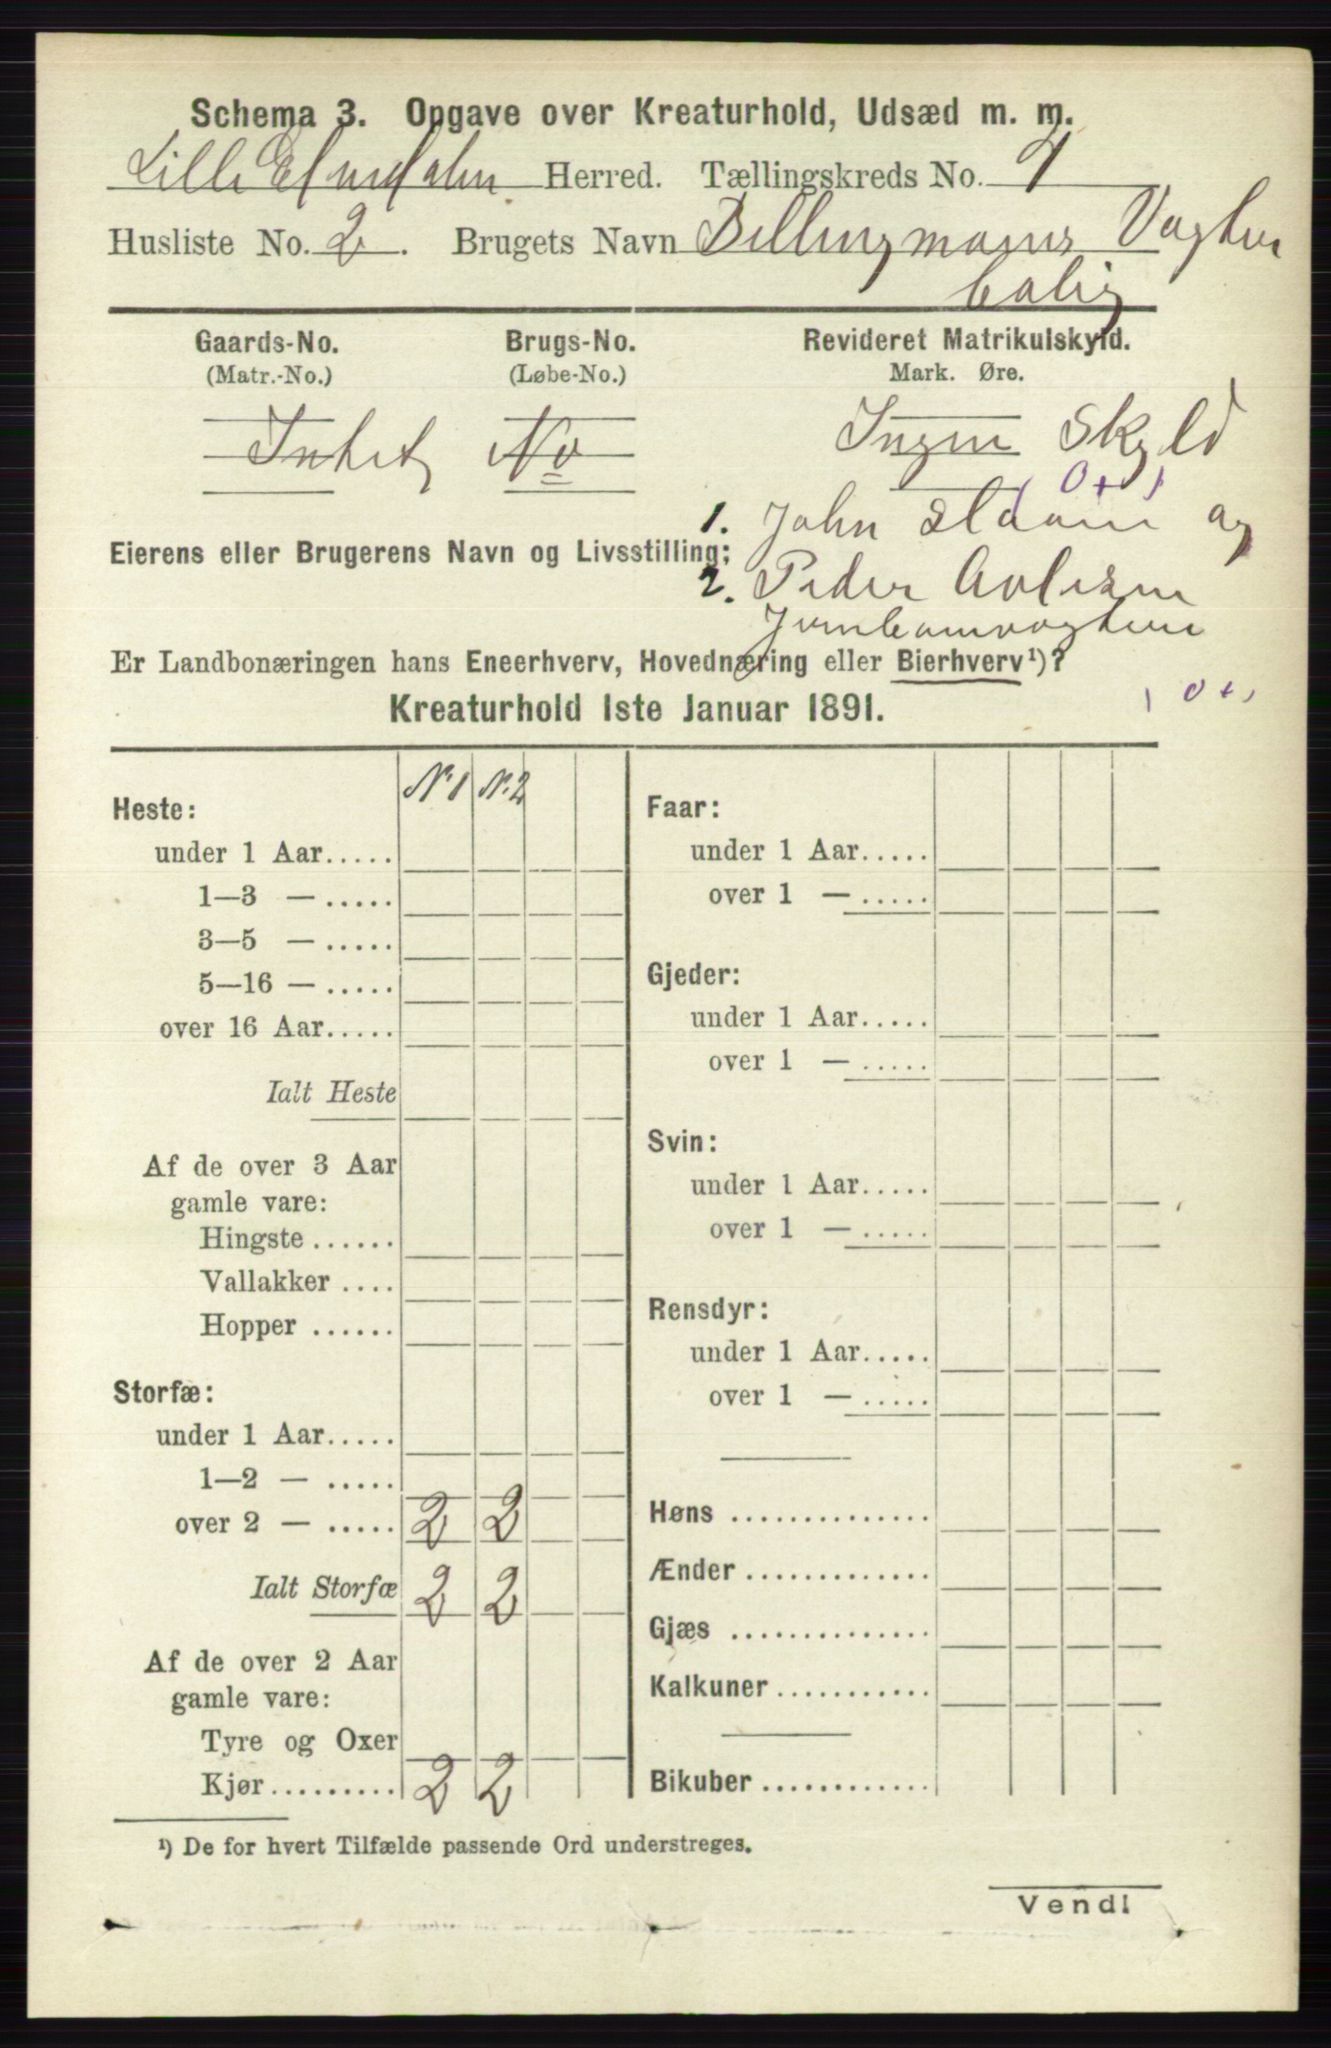 Schema 3. Opgave over Kreaturhold, Udsæd m. m.
Lille Elvedalen Herred. Tællingskreds No. 4
Husliste No. 2. Brugets Navn Bellingmoens Vogter
bolig
Gaards-No. Brugs-No. Revideret Matrikulskyld.
(Matr.-No.) (Løbe-No.) Mark. Øre.
Intet No Ingen Skyld
0 +
1. John og
Eierens eller Brugerens Navn og Livsstilling:
2. Peder Avlesen
Jernbanevogtere
Er Landbonæringen hans Eneerhverv, Hovednæring eller Bierhverv¹)?
0 +
Kreaturhold 1ste Januar 1891.
N. 1 N. 2
Heste:
under 1 Aar.....
1—3 — .....
3—5 — .....
5—16 — .....
over 16 Aar.....
Ialt Heste
Af de over 3 Aar
gamle vare:
Hingste ......
Vallakker ....
Hopper ......
Storfæ:
under 1 Aar.....
1—2 — .....
over 2 — ..... 2 2
Ialt Storfæ 2 2
Af de over 2 Aar
gamle vare:
Tyre og Oxer
Kjør......... 2 2
Faar:
under 1 Aar.....
over 1 — .....
Gjeder:
under 1 Aar.....
over 1 — .....
Svin:
under 1 Aar.....
over 1 — .....
Rensdyr:
under 1 Aar.....
over 1 — .....
Høns ..............
Ænder .............
Gjæs ..............
Kalkuner ...........
Bikuber ............
¹) De for hvert Tilfælde passende Ord understreges.
Vend!